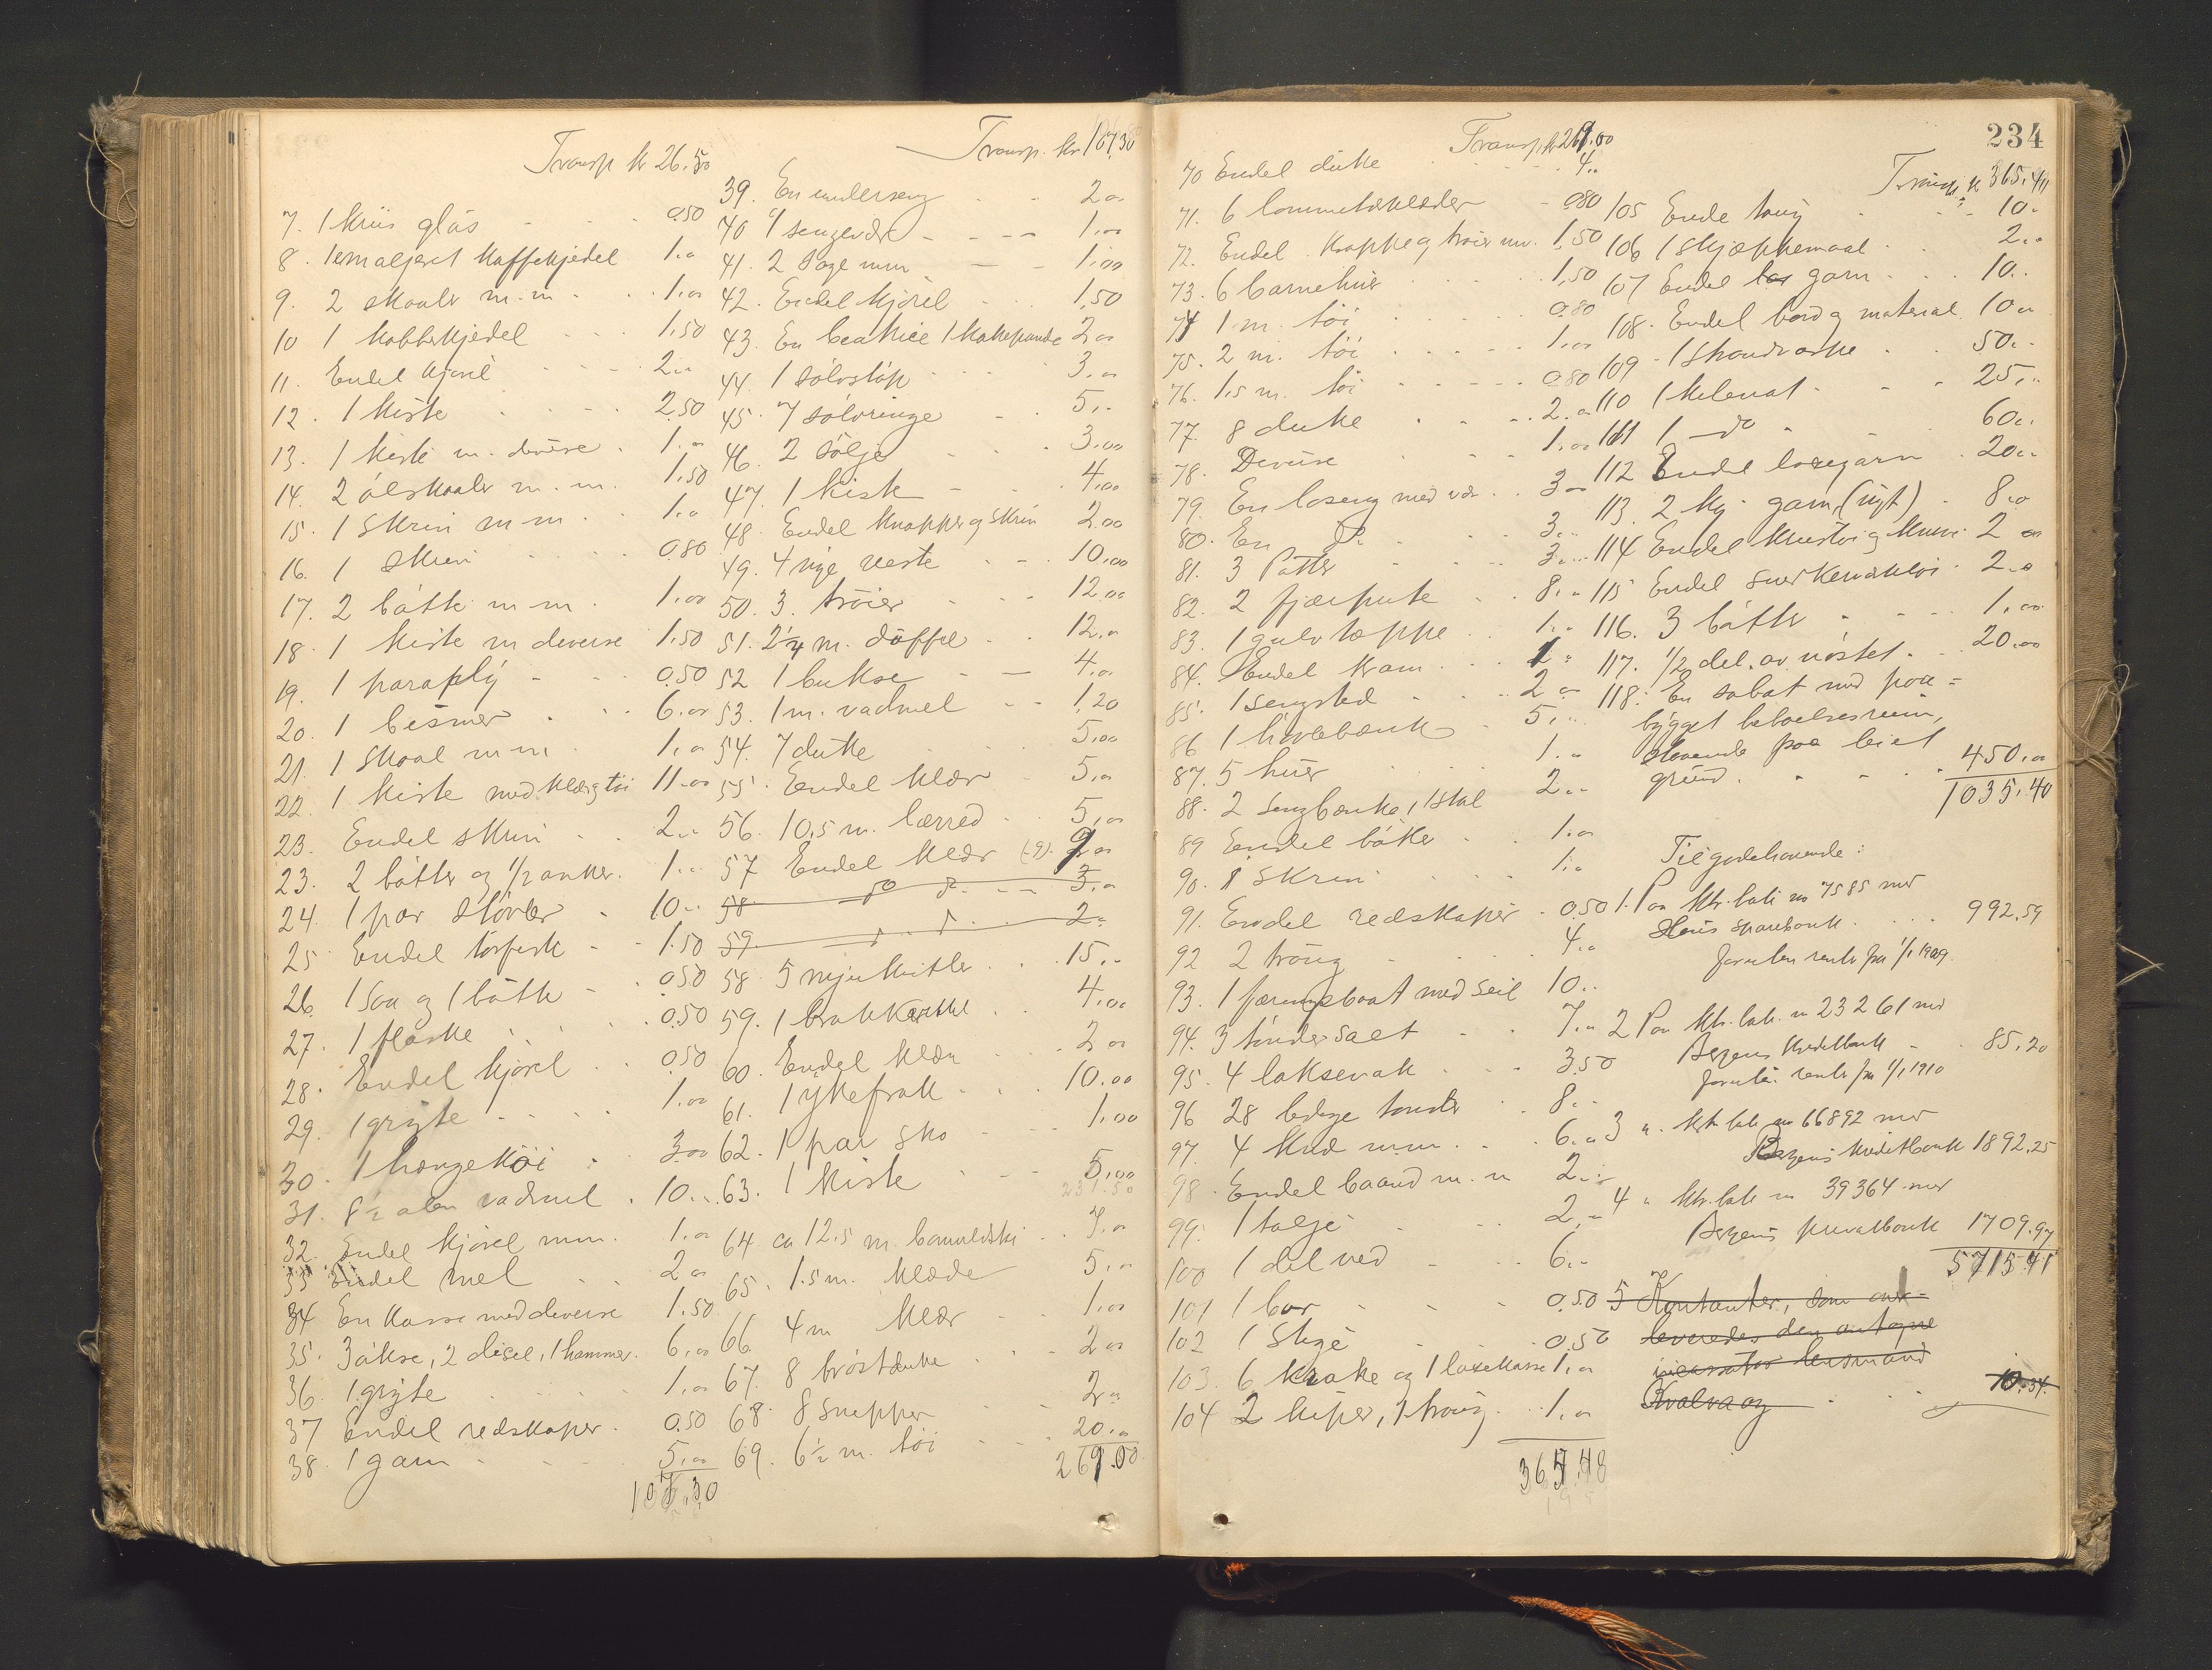 Transp kr 26.50
7. 1 krus glas - - - 0.50
8. 1 emaljeret kaffekjedel 1.00
9. 2 skaaler m.m. . . 1.00
10 1 kobberkjedel . . . 1.50
11. Endel kjørel . . . 2.00
12. 1 kiste . . . . 2.50
13. 1 kiste m. diverse . 1.00
14. 2 ølskaaler m. m. 1.50
15. 1 skrin m m. . . 1.00
16. 1 skrin . . . 0.80
17. 2 bøtte m m. 1.00
18. 1 kiste m diverse 1.50
19. 1 paraply - - - 0.50
20. 1 bismer . . . 6.00
21. 1 skaal m m . . 1.00
22. 1 kiste med klær og tøi 11.00
23. Endel skrin . . 2.00
23. 2 bøtter og 1/2 anker. 1.00
24. 1 par støvler . 10.00
25 Endel tørfisk - - 1.50
26. 1 saa og 1 bøtte - . 0.50
27. 1 flaske . . . . 0.50
28. Endel kjørel . . 0.50
29. 1 gryte - . . . . 1.00
30. 1 hængekøi . 3.00
31. 8 1/2 alen vadmel . 10.00
32. Endel kjørel m.m. 1.00
33 Endel mel . . 2.00
34 En kasse med diverse 1.50
35. 3 økse, 2 disel, 1 hammer. 6.00
36. 1 gryte . . . . 1.00
37 Endel redskaper. 0.50
38. 1 garn . . . . 5.00
107.30
Transp. kr 107.30
39. En underseng . - 2.00
40 1 sengevær - - - - 1.00
41. 2 sage m.m - - 1.00
42. Endel kjørel . . . 1.50
43. En 1 kakepande 2.00
44. 1 sølvstøp . . . . 3.00
45. 7 sølvringe - . 5.00
46. 2 sølje . . . 3.00
47. 1 kiste - . . 4.00
48. Endel knapper og skrin 2.00
49. 4 nye veste . - . 10.00
50. 3. trøier - - - 12.00
51. 2 1/4 m. døffel . . 12.00
52 1 bukse - - 4.00
53. 1 m. vadmel - - 1.20
54. 7 duke . . . 5.00
55. Endel klær - 5.00
56. 10.5 m. lærred . . 5.00
57 Endel klær (9). 9.00
58 do do - - 3.00
59. 2.00
58. 5 . . . 15.00
59. 1 . . 4.00
60. Endel klær . . . 2.00
61. 1 . . . 10.00
62. 1 par sko . - - 1.00
63. 1 kiste . - - 5.00
64 ca 12.5 m. . . 7.00
65. 1.5 m. klæde 5.00
66 4 m klær - 1.00
67. 8 brøstduke . . . 2.00
68. 8 snepper . . 2.00
69. 6 1/2 m. tøi . . . 20.00
269.00
234
Transp kr 269.00
70 Endel duke . . . 4.00
71. 6 lommetørklæder - 0.80
72. Endel og trøier m.v. 1.50
73. 6 barnehuer . . . . 1.50
74 1 m. tøi . . . . . 0.80
75. 2 m. tøi . . . . . 1.00
76. 1.5 m. tøi . . . . 0.80
77. 8 duke . . . . 2.00
78. Diverse . . . 1.00
79. En loseng med vær . . 3.00
80. En Do . . . . 3.00
81. 3 Potter . . . 3.00
82. 2 fjærpute . . 8.00
83. 1 gulvtæppe . . 1.00
84. Endel kram . . . 1.00
85. 1 sengsted . . . . 2.00
86 1 høvlebænk . 5.00
87. 5 huer . . . . 1.00
88. 2 sengbænke, 1 stol 2.00
89 Endel bøker . . 1.00
90. 1 skrin . . . . 1.00
91. Endel redskaper . 0.50
92 2 traug . . . . 4.00
93. 1 færingsbaat med seil 10.00
94. 3 tønder salt . . 7.00
95. 4 laksevak . . . 3.50
96 28 ledige tønder . 8.00
97. 4 m.m. . . 6.00
98. Endel baand m. m 2.00
99. 1 talje . . . 2.00
100 1 del ved - . . 6.00
101 1 bor . . . . 0.50
102 1 stige . . . . 0.50
103. 6 krake og 1 laxekasse 1.00
104 2 kiper, 1 traug . . 1.00
Transp. kr 365.40
105 Ende taug . . . - 10.
106 1 skjæppemaal . . . 2.00
107 Endel garn . . . 10..
108. Endel bord og material. 10.00
109 - 1 . . 50..
110 1 . . . 25,..
111 1 - do . 60..
112 Endel laxegarn . 20..
113. 2 kg. garn, (nyt) . 8.00
114 Endel og 2.00
115 Endel . 2.00
116. 3 bøtter . . - - - 1.00
117. 1/2 del. av nøstet. . . 20.00
118. En søbot med paa=
bygget beboelsesrum,
staaende paa leiet
grund. . . . . 450.00
1035.40
Tilgodehavende:
1. Paa ktr. bok no 7585 med
sparebank . . . . 992.59
foruten rente fra 1/1 1909.
2 Paa ktr. bok. no 23261 med
Bergens Kreditbank - . 85.20
foruten rente fra 1/1 1910
3 " ktr. bok no 66892 med
Bergens Kreditbank 1892.25
4 " ktr. bok no 39364 med
Bergens Privatbank 1709.97
5715.41
5 Kontanter, som over-
leveredes den antagne
incassator lensmand
Kvalvaag . . 10.34.